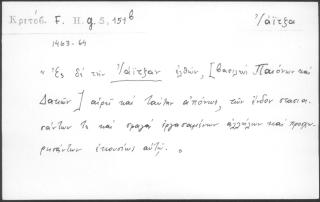 Κριτόβ. F. H. g. S, 151ᵇ
Ἰάϊτζα
1463-64
« Ἐς δὲ τὴν Ἰάϊτζαν ἐλθὼν, [βασιλεὺς Παιόνων καὶ
Δακῶν] αἱρεῖ καὶ ταύτην ἀπόνως, τῶν ἔνδον στασια-
σάντων τε καὶ σφαγὰ ἐργασαμένων ἀλλήλων καὶ προσχω-
ρησάντων ἑκουσίως αὐτῷ.